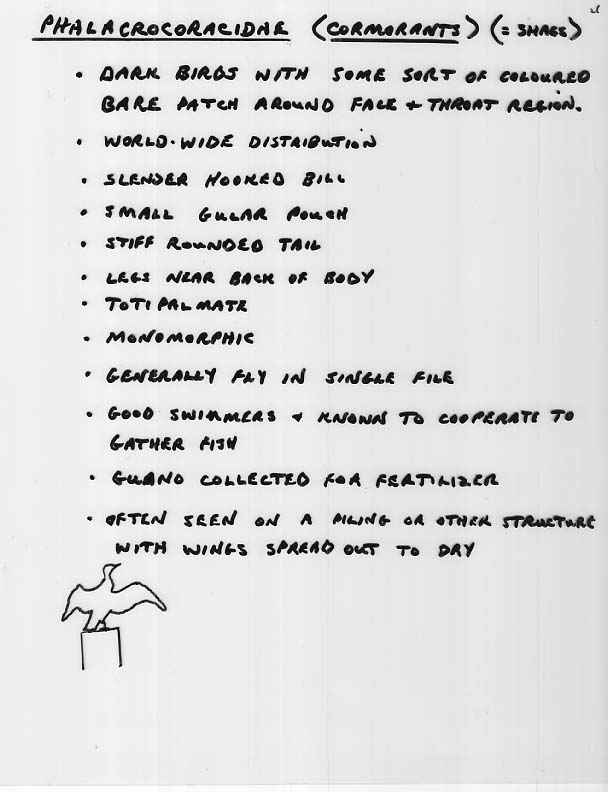 PHALACROCORACIDAE (CORMORANTS) (= SHAGS)
• DARK BIRDS WITH SOME SORT OF COLOURED
BARE PATCH AROUND FACE + THROAT REGION.
• WORLD-WIDE DISTRIBUTION
• SLENDER HOOKED BILL
• SMALL GULAR POUCH
• STIFF ROUNDED TAIL
• LEGS NEAR BACK OF BODY
• TOTIPALMATE
• MONOMORPHIC
• GENERALLY FLY IN SINGLE FILE
• GOOD SWIMMERS + KNOWN TO COOPERATE TO
GATHER FISH
• GUANO COLLECTED FOR FERTILIZER
• OFTEN SEEN ON A PILING OR OTHER STRUCTURE
WITH WINGS SPREAD OUT TO DRY